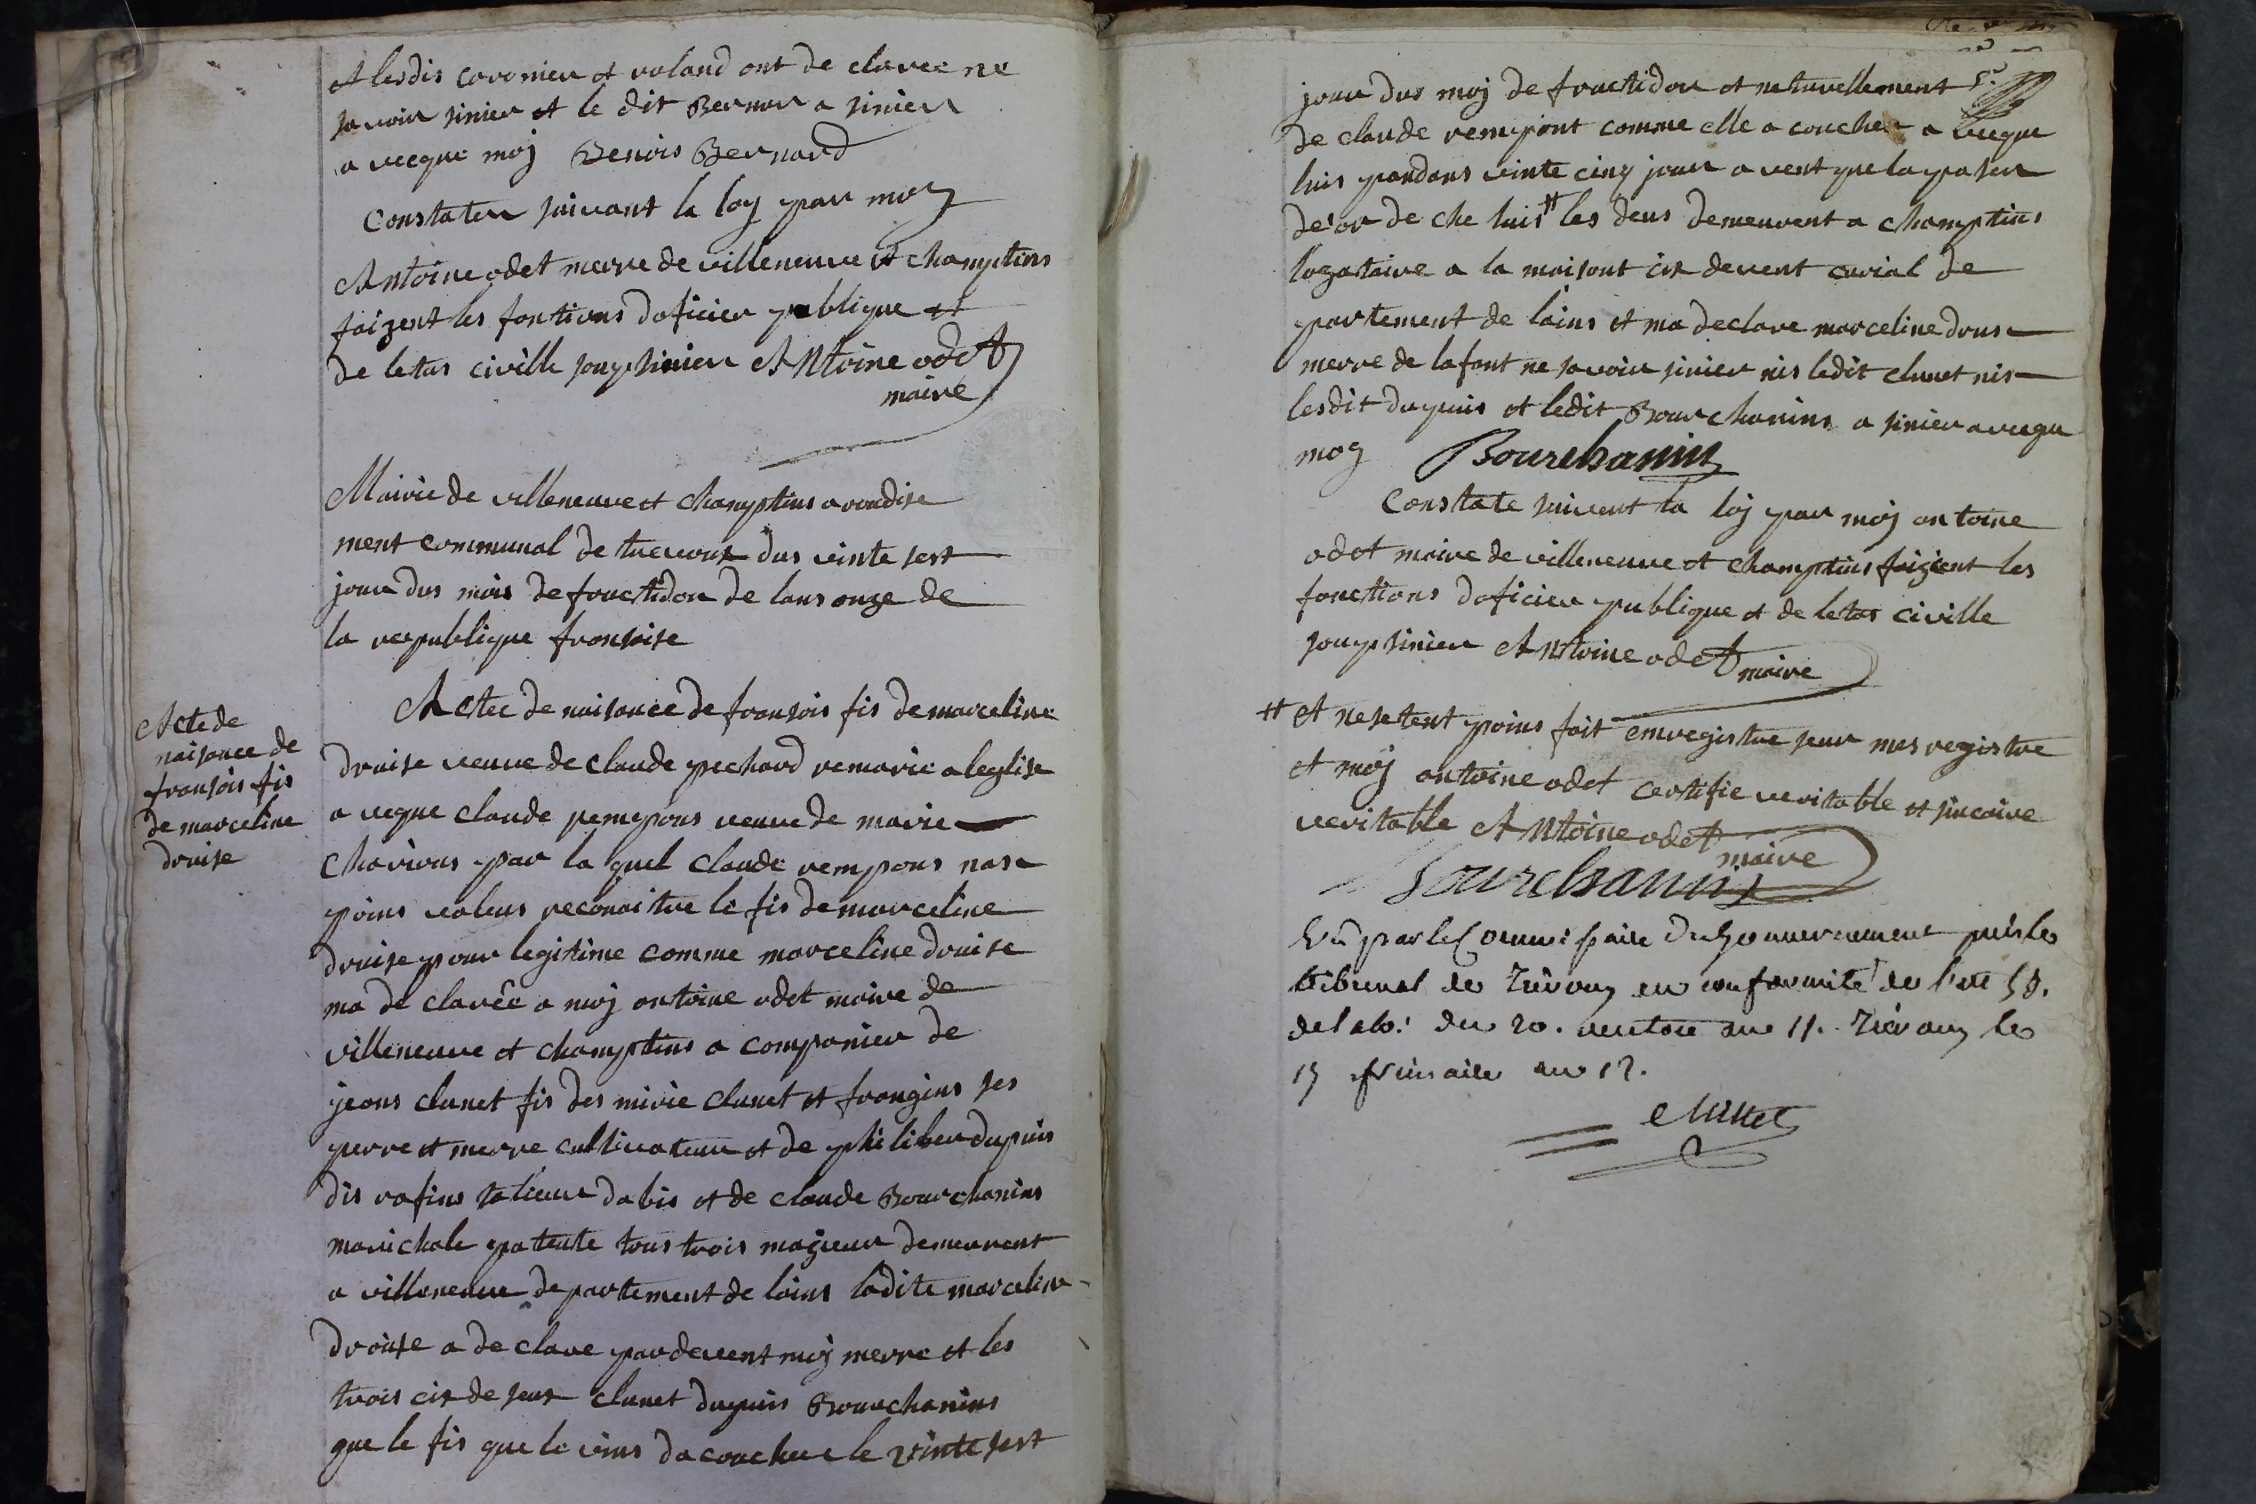 et lesdis coronier et roland ont de claree ne
savoir sinier et le dit Bernar a sinier
avecque moj Benois Bernard
Constater suivant la loy par moy
Antoine odet merre de villeneuve et champtins
faizent les fontions doficier publique et
de letas civille sousinier Antoine odet
maire
Mairie de villeneuve et champtins arondise
ment communal de trevoux dus vinte sest
jour dus mois de fructidor de lans onze de
la republique fransoise
Acte de
naisance de
fransois fis
de marceline
druise
Actee de naisance de fransois fis de marceline
druise veuve de claude pechard remarie a leglise
avecque claude rempons veuve de marie
charions par la quel claude rempons nase
poins voleus reconaitre le fis de marceline
druise pour legitime comme marceline druise
ma de clarêe a moj antoine odet maire de
villeneuve et champtins a companier de
jeans clunet fis des mirie clunet et frangins ses
perre et merre cultivateur et de phi liber dupuis
dis rafins talieur dabis et de claude Bourchanins
marichale patente tous trois majieur demeurent
a villeneuve departement de loins ladite marceline
druise a de clare par devent moj merre et les
trois cis de sus clunet dupuis Bourchanins
que le fis que le vins dacouchee le vinte sest
jour dus moj de fructidor et naturellement
de claude rempont comme elle a coucher avecque
luis pandans vinte cinq jour avent que la paser
de'or de che luis # les deus demeurent a champtins
logataire a la maisont cis devent curial de
partement de loins et ma declare marceline druse
merre de lafant ne savoir sinier nis ledit clunet nis
lesdit dupuis et ledit Bourchanins a sinier avecque
moy Bourchanin
Constate suivent la loj par moj antoine
odet maire de villeneuve et champtins faizient les
fonctions doficier publique et de letas civille
sousinier Antoine odet maire
# et ne setent poins fait enregistre seur mes registre
et moj antoine odet certifie veritable et sincaire
veritable Antoine odet maire
Bourchanin
Vû par le Commissaire du Gouvernement près le
tribunal de Trévoux en conformité de l'art 53.
de la loi du 20. ventose an 11. Trévoux le
15 frimaire an 12.